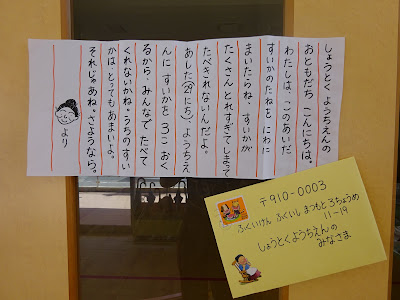 しょうとく ようちえんの
おともだち こんにちは。
わたしは、このあいだ
すいかのたねを にわに
まいたらね、すいかが
たくさん とれすぎてしまって
たべきれないんだよ。
あした(29にち)、ようちえ
んに、すいかを 3こ おく
るから、みんなで たべて
くれないかね。うちのすい
かは、とっても あまいよ。
それじゃあね。さようなら。
より
〒910-0003
ふくいけん ふくいし まつもと3ちょうめ
11-19
しょうとくようちえんの
みなさま